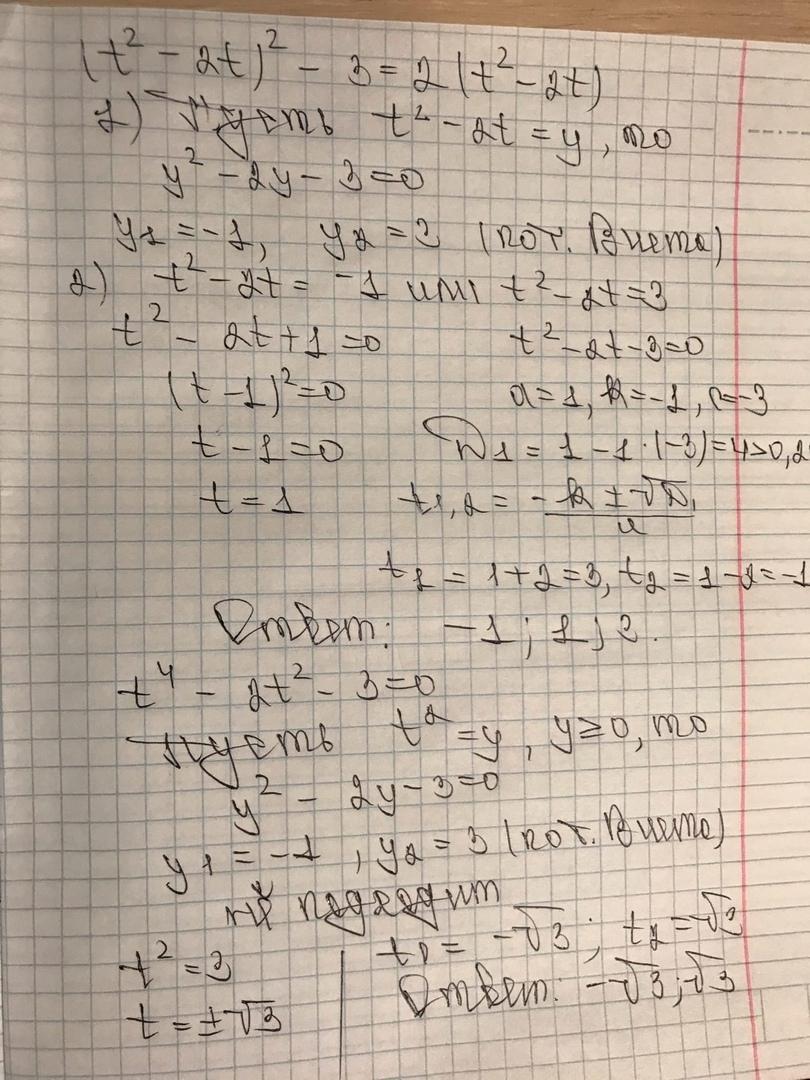 (t² - 2t)² - 3 = 2(t² - 2t)
1) Пусть t² - 2t = y, то
y² - 2y - 3 = 0
y₁ = -1, y₂ = 3 (по т. Виета)
2) t² - 2t = -1 или t² - 2t = 3
t² - 2t + 1 = 0 t² - 2t - 3 = 0
(t - 1)² = 0 a = 1, k = -1, c = -3
t - 1 = 0 D₁ = 1 - 1·(-3) = 4 > 0, 2
t = 1 t₁,₂ = (-k ± √D₁)/a
t₁ = 1 + 2 = 3, t₂ = 1 - 2 = -1
Ответ: -1; 1; 3.
t⁴ - 2t² - 3 = 0
Пусть t² = y, y ≥ 0, то
y² - 2y - 3 = 0
y₁ = -1, y₂ = 3 (по т. Виета)
не подходит
t² = 3 t₁ = -√3; t₂ = √3
t = ±√3 Ответ: -√3; √3